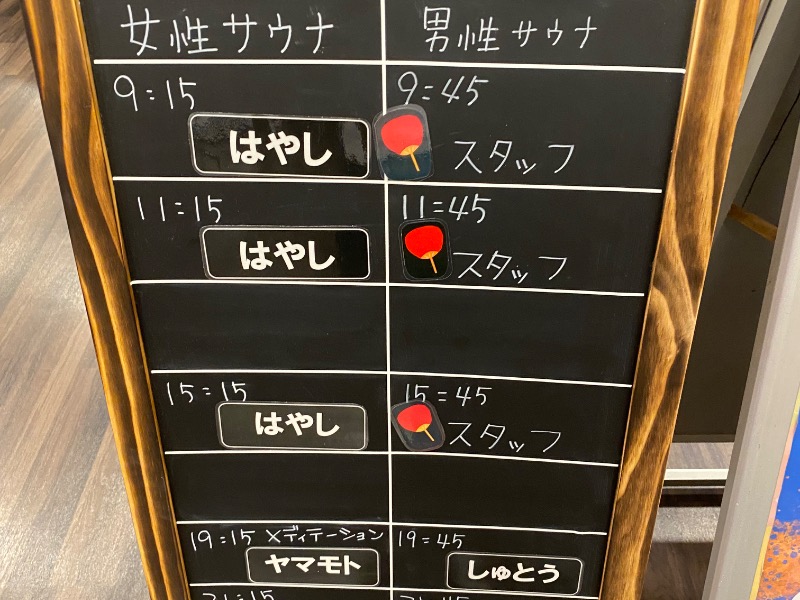 女性サウナ 男性サウナ
9:15 9:45
はやし スタッフ
11:15 11:45
はやし スタッフ
15:15 15:45
はやし スタッフ
19:15 メディテーション 19:45
ヤマモト しゅとう
21:15